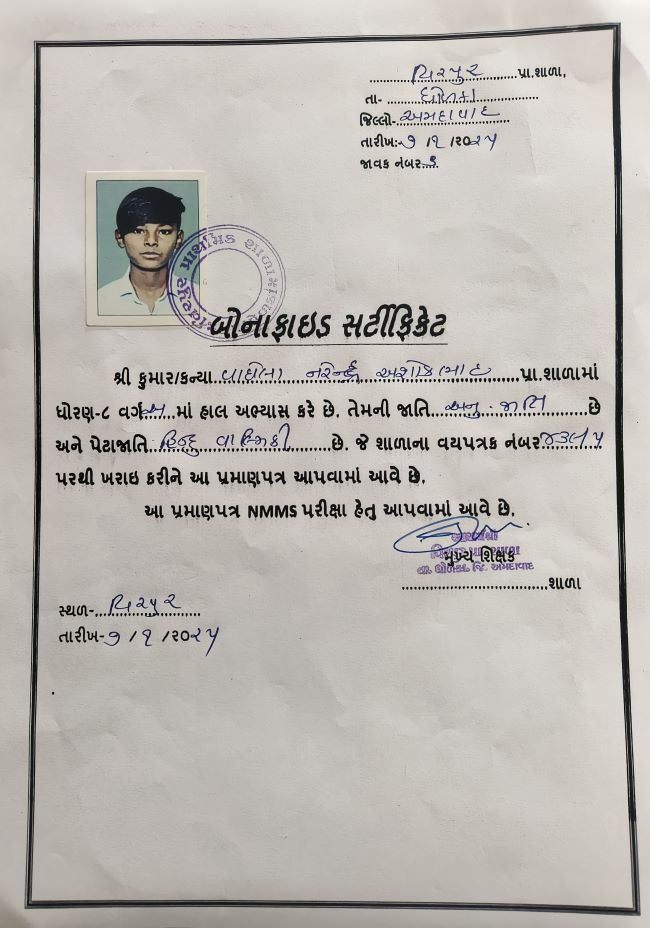 પિસાવાડા પ્રા.શાળા,
તા- ધોળકા
જિલ્લો- અમદાવાદ
તારીખ:- ૭ /૧ /૨૦૨૫
જાવક નંબર
બોનાફાઇડ સર્ટીફિકેટ
શ્રી કુમાર/કન્યા વાઘેલા નરેન્દ્ર અશોકભાઇ પ્રા.શાળામાં
ધોરણ-૮ વર્ગ અ માં હાલ અભ્યાસ કરે છે. તેમની જાતિ અનુ. જાતિ છે
અને પેટાજાતિ હિન્દુ વાલ્મિકી છે. જે શાળાના વયપત્રક નંબર
પરથી ખરાઇ કરીને આ પ્રમાણપત્ર આપવામાં આવે છે.
આ પ્રમાણપત્ર NMMS પરીક્ષા હેતુ આપવામાં આવે છે.
મુખ્ય શિક્ષક
તા. ધોળકા, જિ. અમદાવાદ
શાળા
સ્થળ-
તારીખ- ૭ /૧ /૨૦૨૫